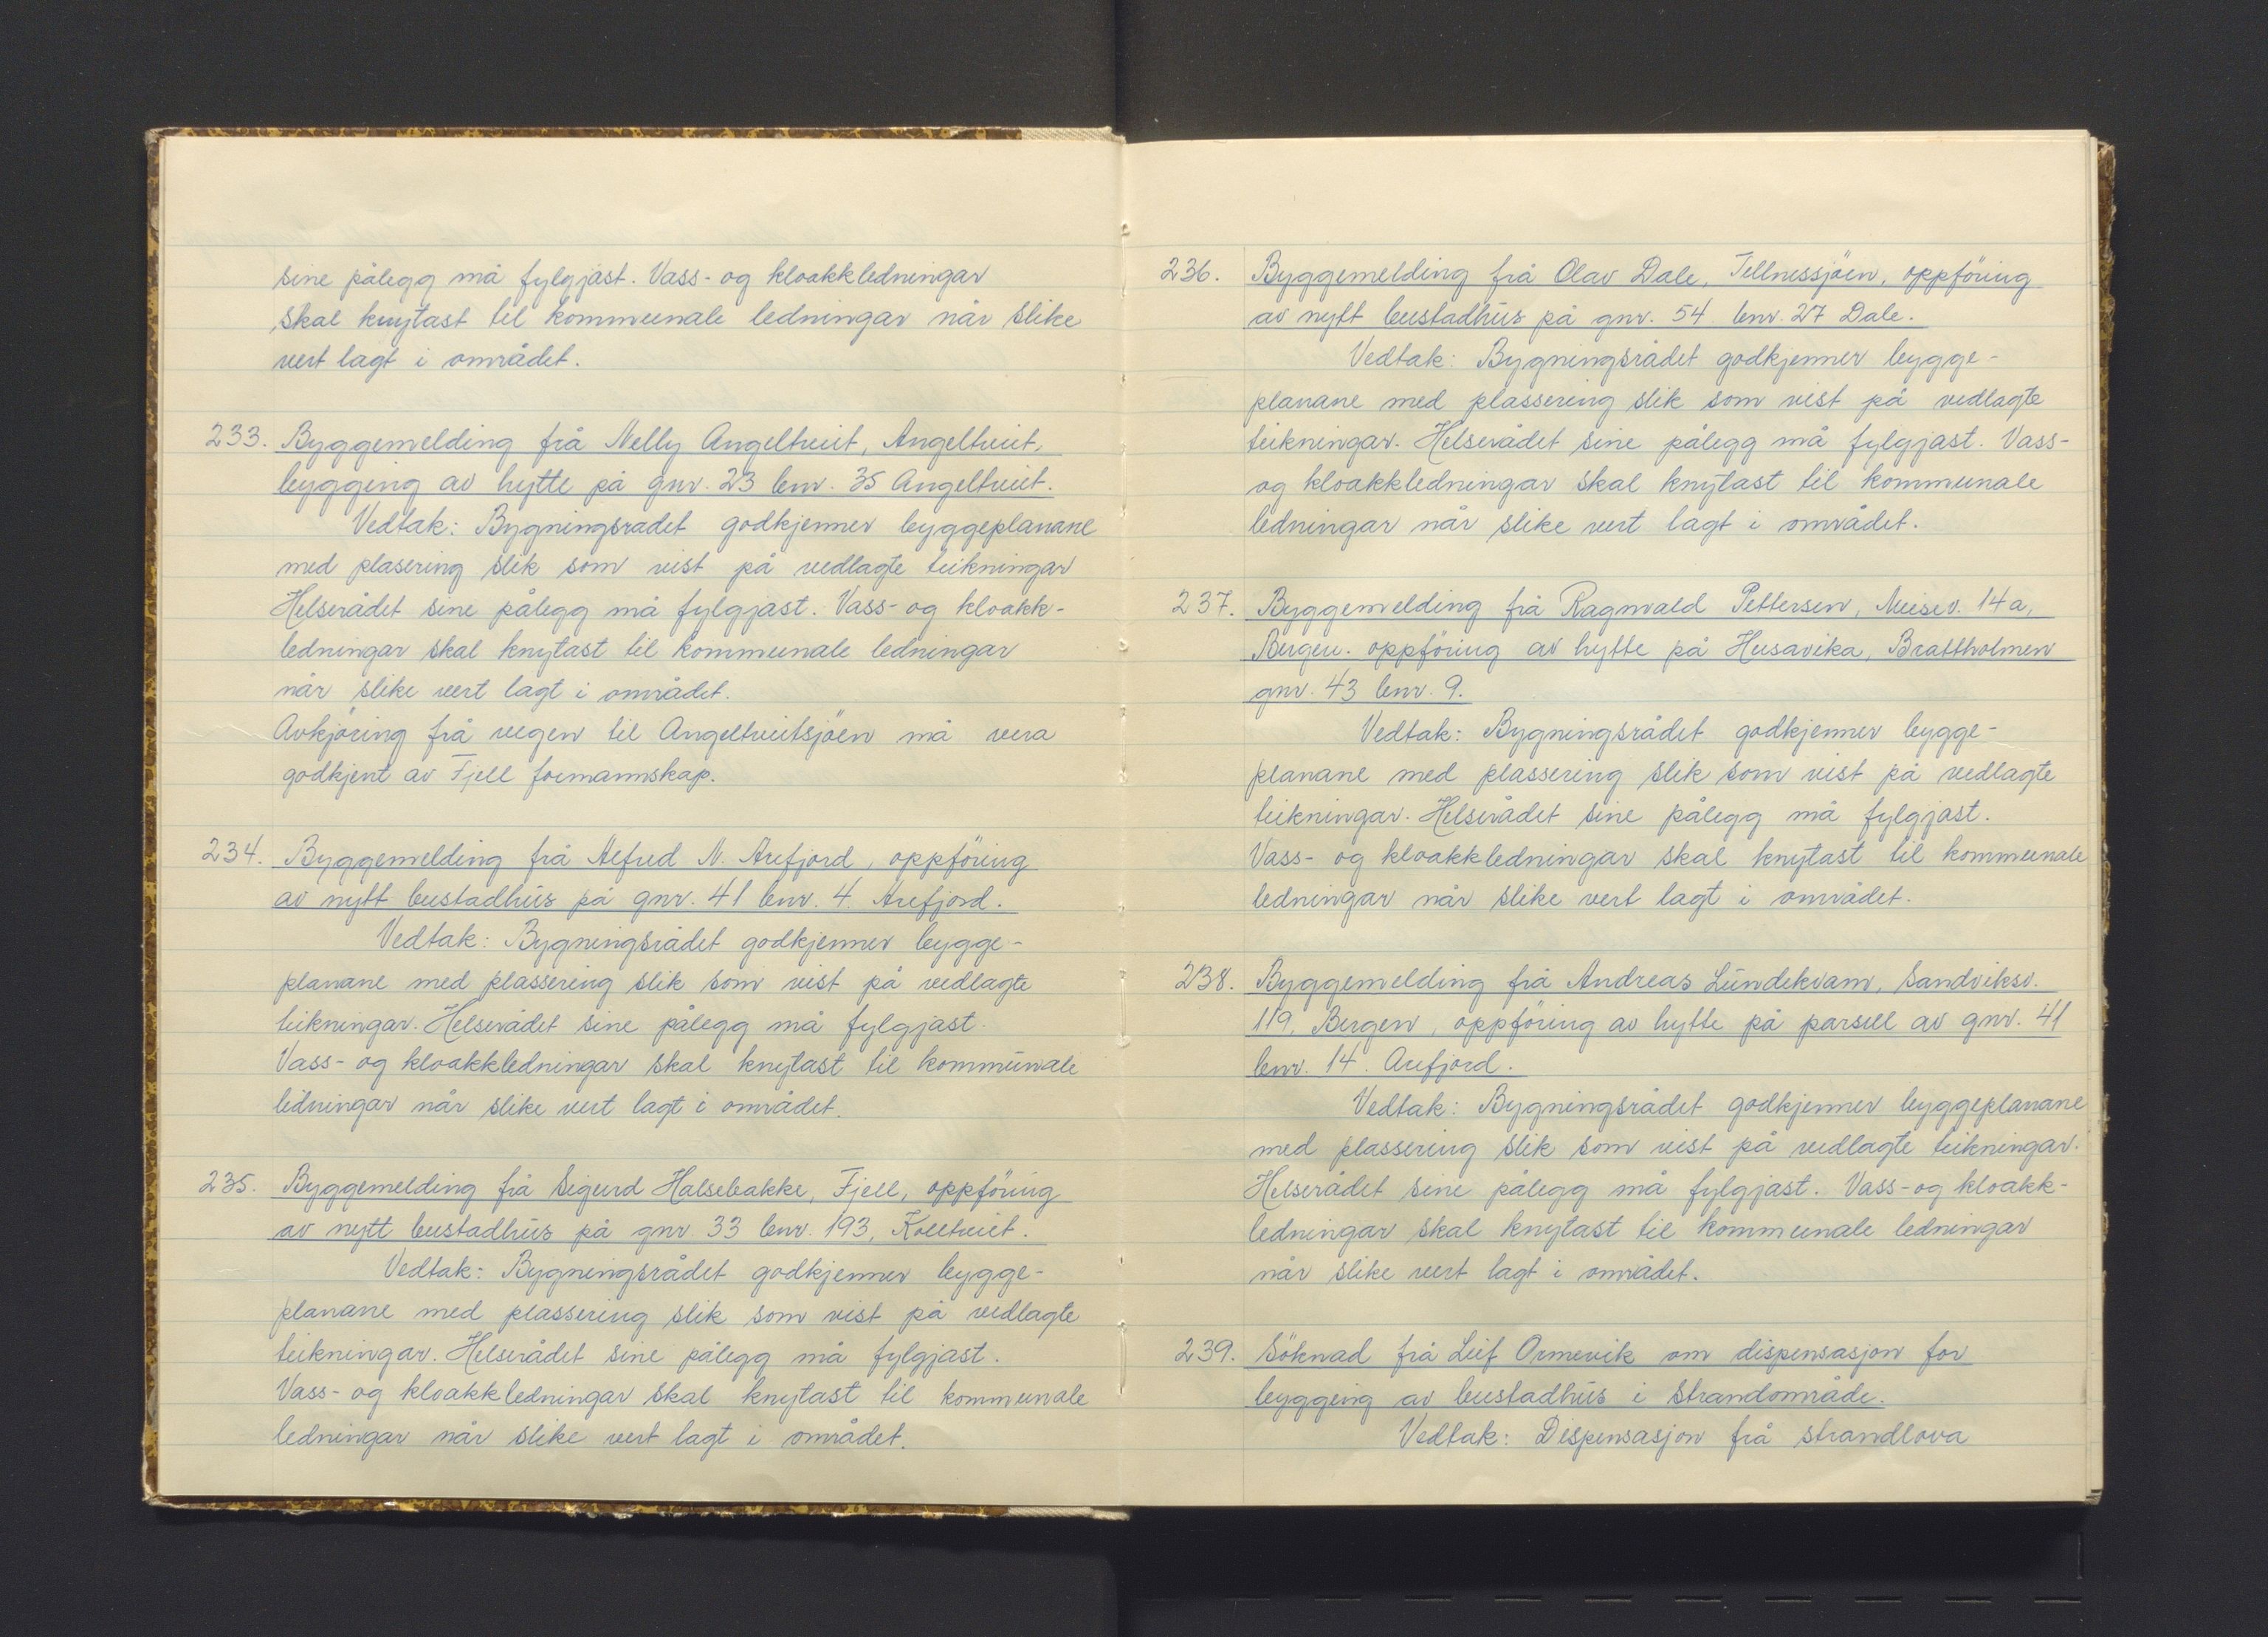 sine pålegg må fylgjast. Vass- og kloakkledningar
skal knytast til kommunale ledningar når slike
vert lagt i området.
233. Byggemelding frå Nelly Angeltveit, Angeltveit,
bygging av hytte på gnr. 23 bnr. 35 Angeltveit.
Vedtak: Bygningsradet godkjenner byggeplanane
med plasering slik som vist på vedlagte teikningar
Helserådet sine pålegg må fylgjast. Vass- og kloakk-
ledningar skal knytast til kommunale ledningar
når slike vert lagt i området.
Avkjöring frå vegen til Angeltveitsjöen må vera
godkjent av Fjell formannskap.
234. Byggemelding frå Alfred N. Arefjord, oppföring
av nytt bustadhus på gnr. 41 bnr. 4. Arefjord.
Vedtak: Bygningsrådet godkjenner bygge-
planane med plassering slik som vist på vedlagte
teikningar. Helserådet sine pålegg må fylgjast.
Vass- og kloakkledningar skal knytast til kommunale
ledningar når slike vert lagt i området.
235. Byggemelding frå Sigurd Halsebakke, Fjell, oppföring
av nytt bustadhus på gnr. 33 bnr. 193, Kolltveit.
Vedtak: Bygningsrådet godkjenner bygge-
planane med plassering slik som vist på vedlagte
teikningar. Helserådet sine pålegg må fylgjast.
Vass- og kloakkledningar skal knytast til kommunale
ledningar når slike vert lagt i området.
236. Byggemelding frå Olav Dale, Tellnessjöen, oppföring
av nytt bustadhus på gnr. 54 bnr. 27 Dale.
Vedtak: Bygningsrådet godkjenner bygge-
planane med plassering slik som vist på vedlagte
teikningar. Helserådet sine pålegg må fylgjast. Vass-
og kloakkledningar skal knytast til kommunale
ledningar når slike vert lagt i området.
237. Byggemelding frå Ragnvald Pettersen, Meisev. 14a,
Bergen. oppföring av hytte på Husavika, Brattholmen
gnr. 43 bnr. 9.
Vedtak: Bygningsrådet godkjenner bygge-
planane med plassering slik som vist på vedlagte
teikningar. Helserådet sine pålegg må fylgjast.
Vass- og kloakkledningar skal knytast til kommunale
ledningar når slike vert lagt i området.
238. Byggemelding frå Andreas Lundekvam, Sandviksv.
119, Bergen, oppföring av hytte på parsell av gnr. 41
bnr. 14. Arefjord.
Vedtak: Bygningsrådet godkjenner byggeplanane
med plassering slik som vist på vedlagte teikningar.
Helserådet sine pålegg må fylgjast. Vass- og kloakk-
ledningar skal knytast til kommunale ledningar
når slike vert lagt i området.
239. Söknad frå Leif Ormevik om dispensasjon for
bygging av bustadhus i strandområde.
Vedtak: Dispensasjon frå strandlova